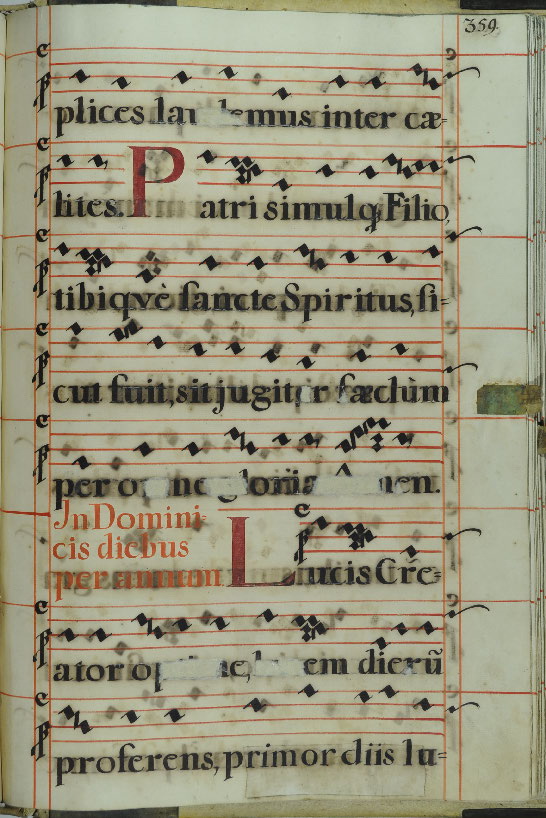 359.
plices lau demus inter cæ-
lites. Patri simulq; Filio,
tibiqvè sancte Spiritus, si-
cut fuit, sit jugiter sæclùm
per glori men.
Jn Domini-
cis diebus
per annum Lucis Cr̃e-
ator em dierũ
proferens, primordiis lu-